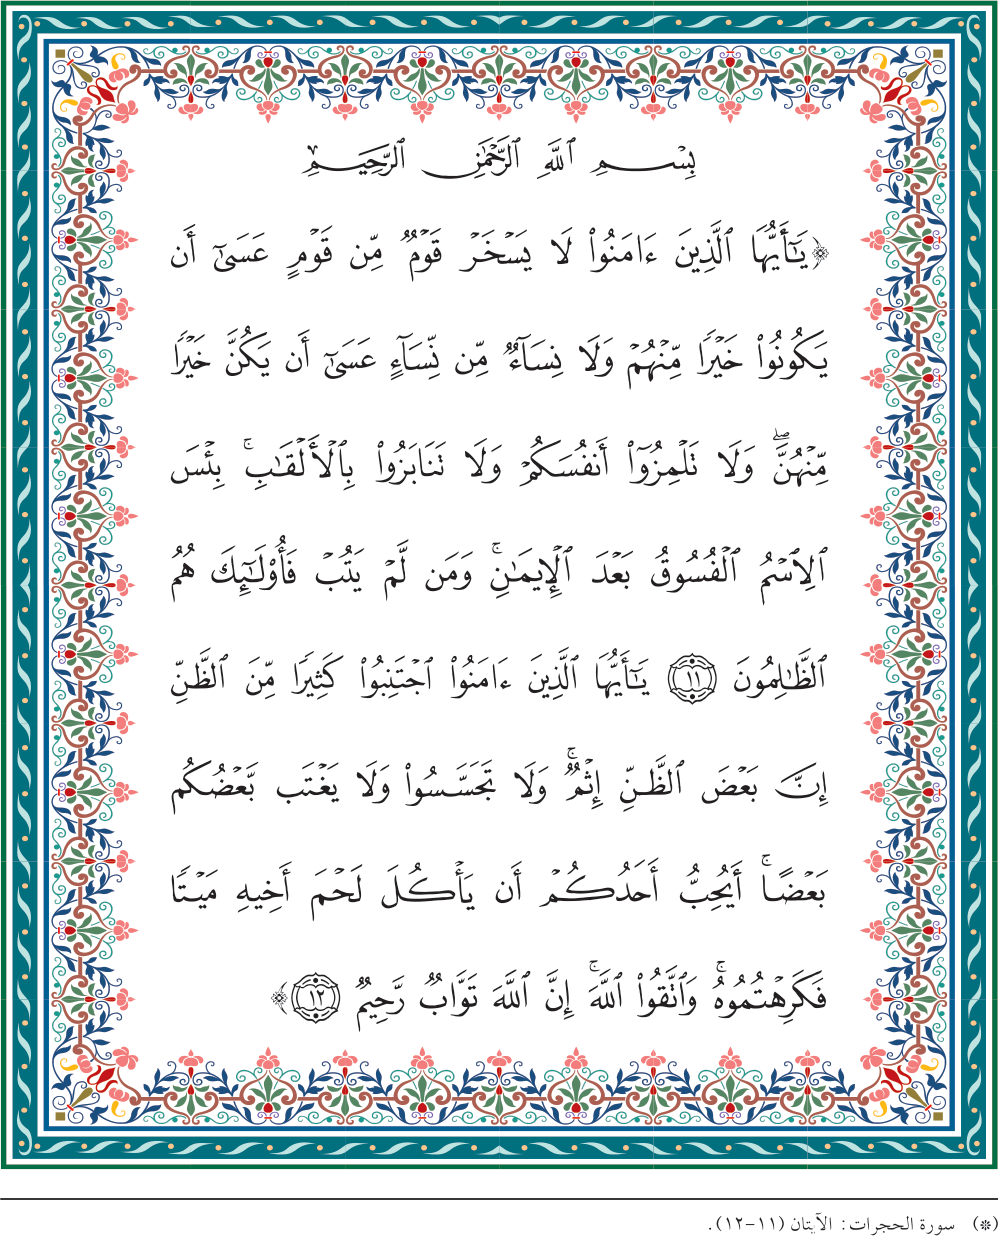 بِسْمِ ٱللَّهِ ٱلرَّحْمَٰنِ ٱلرَّحِيمِ
﴿يَـٰٓأَيُّهَا ٱلَّذِينَ ءَامَنُوا۟ لَا يَسْخَرْ قَوْمٌ مِّن قَوْمٍ عَسَىٰٓ أَن
يَكُونُوا۟ خَيْرًا مِّنْهُمْ وَلَا نِسَآءٌ مِّن نِّسَآءٍ عَسَىٰٓ أَن يَكُنَّ خَيْرًا
مِّنْهُنَّ ۖ وَلَا تَلْمِزُوٓا۟ أَنفُسَكُمْ وَلَا تَنَابَزُوا۟ بِٱلْأَلْقَـٰبِ ۚ بِئْسَ
ٱلِٱسْمُ ٱلْفُسُوقُ بَعْدَ ٱلْإِيمَـٰنِ ۚ وَمَن لَّمْ يَتُبْ فَأُو۟لَـٰٓئِكَ هُمُ
ٱلظَّـٰلِمُونَ ١١ يَـٰٓأَيُّهَا ٱلَّذِينَ ءَامَنُوا۟ ٱجْتَنِبُوا۟ كَثِيرًا مِّنَ ٱلظَّنِّ
إِنَّ بَعْضَ ٱلظَّنِّ إِثْمٌ ۚ وَلَا تَجَسَّسُوا۟ وَلَا يَغْتَب بَّعْضُكُم
بَعْضًا ۚ أَيُحِبُّ أَحَدُكُمْ أَن يَأْكُلَ لَحْمَ أَخِيهِ مَيْتًا
فَكَرِهْتُمُوهُ ۚ وَٱتَّقُوا۟ ٱللَّهَ ۚ إِنَّ ٱللَّهَ تَوَّابٌ رَّحِيمٌ ١٢﴾
(※) سورة الحجرات: الآيتان (١١-١٢).